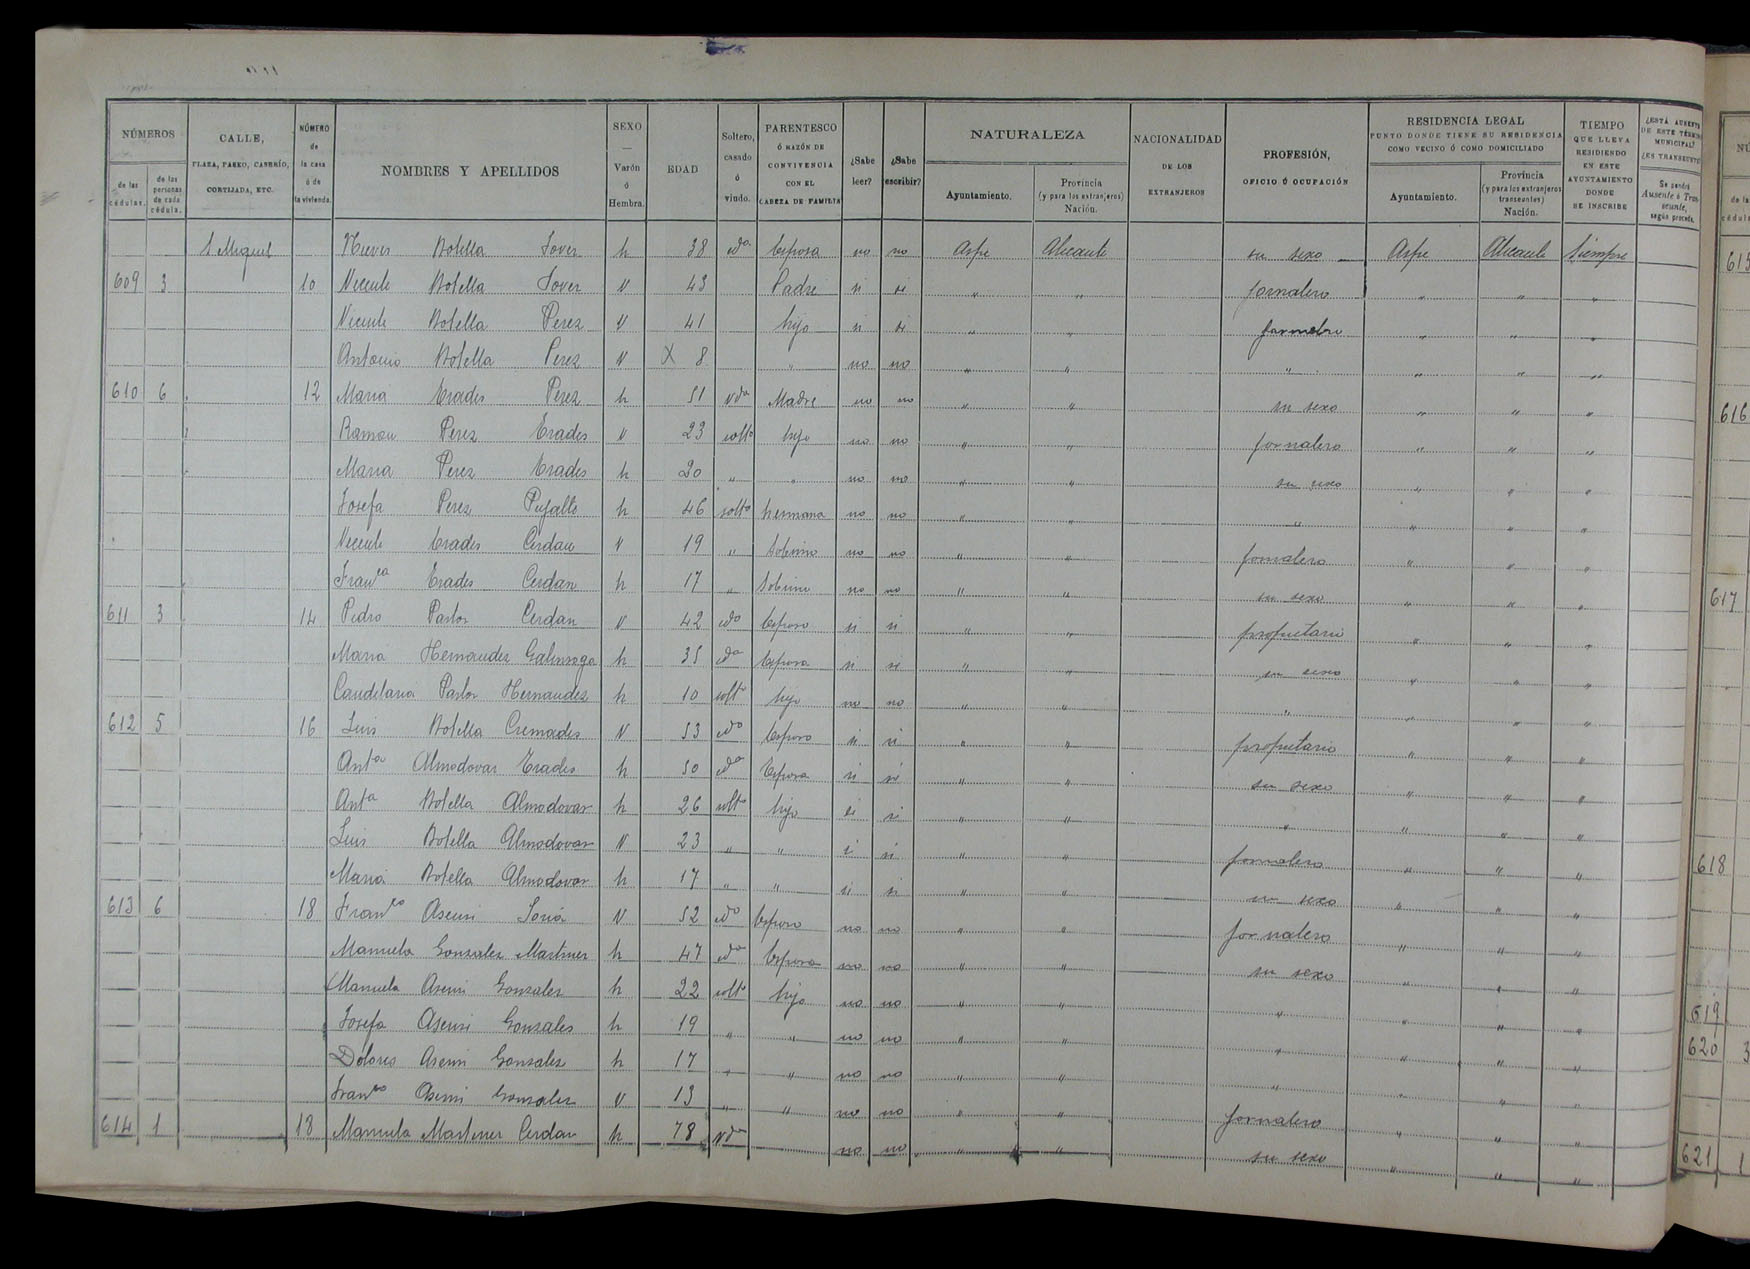 NÚMEROS
de las cédulas.
de las personas de cada cédula.
CALLE,
PLAZA, PASEO, CASERÍO,
CORTIJADA, ETC.
NÚMERO de la casa ó de la vivienda.
NOMBRES Y APELLIDOS
SEXO — Varón ó Hembra.
EDAD
Soltero, casado ó viudo.
PARENTESCO Ó RAZÓN DE CONVIVENCIA CON EL CABEZA DE FAMILIA
¿Sabe leer?
¿Sabe escribir?
NATURALEZA
Ayuntamiento.
Provincia (y para los extranjeros) Nación.
NACIONALIDAD DE LOS EXTRANJEROS
PROFESIÓN,
OFICIO Ó OCUPACIÓN
RESIDENCIA LEGAL
PUNTO DONDE TIENE SU RESIDENCIA
COMO VECINO Ó COMO DOMICILIADO
Ayuntamiento.
Provincia (y para los extranjeros transeuntes) Nación.
TIEMPO QUE LLEVA RESIDIENDO EN ESTE AYUNTAMIENTO DONDE SE INSCRIBE
¿ESTÁ AUSENTE DE ESTE TÉRMINO MUNICIPAL? ¿ES TRANSEUNTE?
Se pondrá Ausente ó Transeunte, según proceda.
S Miguel Nieves Botella Jover h 38 cda Esposa no no Aspe Alicante su sexo Aspe Alicante Siempre
609 3 10 Vicente Botella Jover V 43 Padre si si " " jornalero " " "
Vicente Botella Perez V 41 hijo si si " " jornalero " " "
Antonio Botella Perez V X 8 " no no " " " " " "
610 6 12 Maria Erades Perez h 51 vda Madre no no " " su sexo " " "
Ramon Perez Erades V 23 solto hijo no no " " jornalero " " "
Maria Perez Erades h 20 " " no no " " su sexo " " "
Josefa Perez Pujalte h 46 solta hermana no no " " " " " "
Vicente Erades Cerdan V 19 " Sobrino no no " " jornalero " " "
Franca Erades Cerdan h 17 " Sobrino no no " " su sexo " " "
611 3 14 Pedro Pastor Cerdan V 42 cdo Esposo si si " " propietario " " "
Maria Hernandez Galinsoga h 35 cda Esposa si si " " su sexo " " "
Candelaria Pastor Hernandez h 10 solta hijo no no " " " " " "
612 5 16 Luis Botella Cremades V 53 cdo Esposo si si " " propietario " " "
Anta Almodovar Erades h 50 cda Esposa si si " " su sexo " " "
Anta Botella Almodovar h 26 solta hijo si si " " " " " "
Luis Botella Almodovar V 23 " " si si " " jornalero " " "
Maria Botella Almodovar h 17 " " si si " " su sexo " " "
613 6 18 Franco Asensi Soria V 52 cdo Esposo no no " " jornalero " " "
Manuela Gonzalez Martinez h 47 cda Esposa no no " " su sexo " " "
Manuela Asensi Gonzalez h 22 solta hijo no no " " " " " "
Josefa Asensi Gonzales h 19 " " no no " " " " " "
Dolores Asensi Gonzalez h 17 " " no no " " " " " "
Franco Asensi Gonzalez V 13 " " no no " " jornalero " " "
614 1 18 Manuela Martinez Cerdan h 78 vda no no " " su sexo " " "
615
616
617
618
619
620 3
621 1